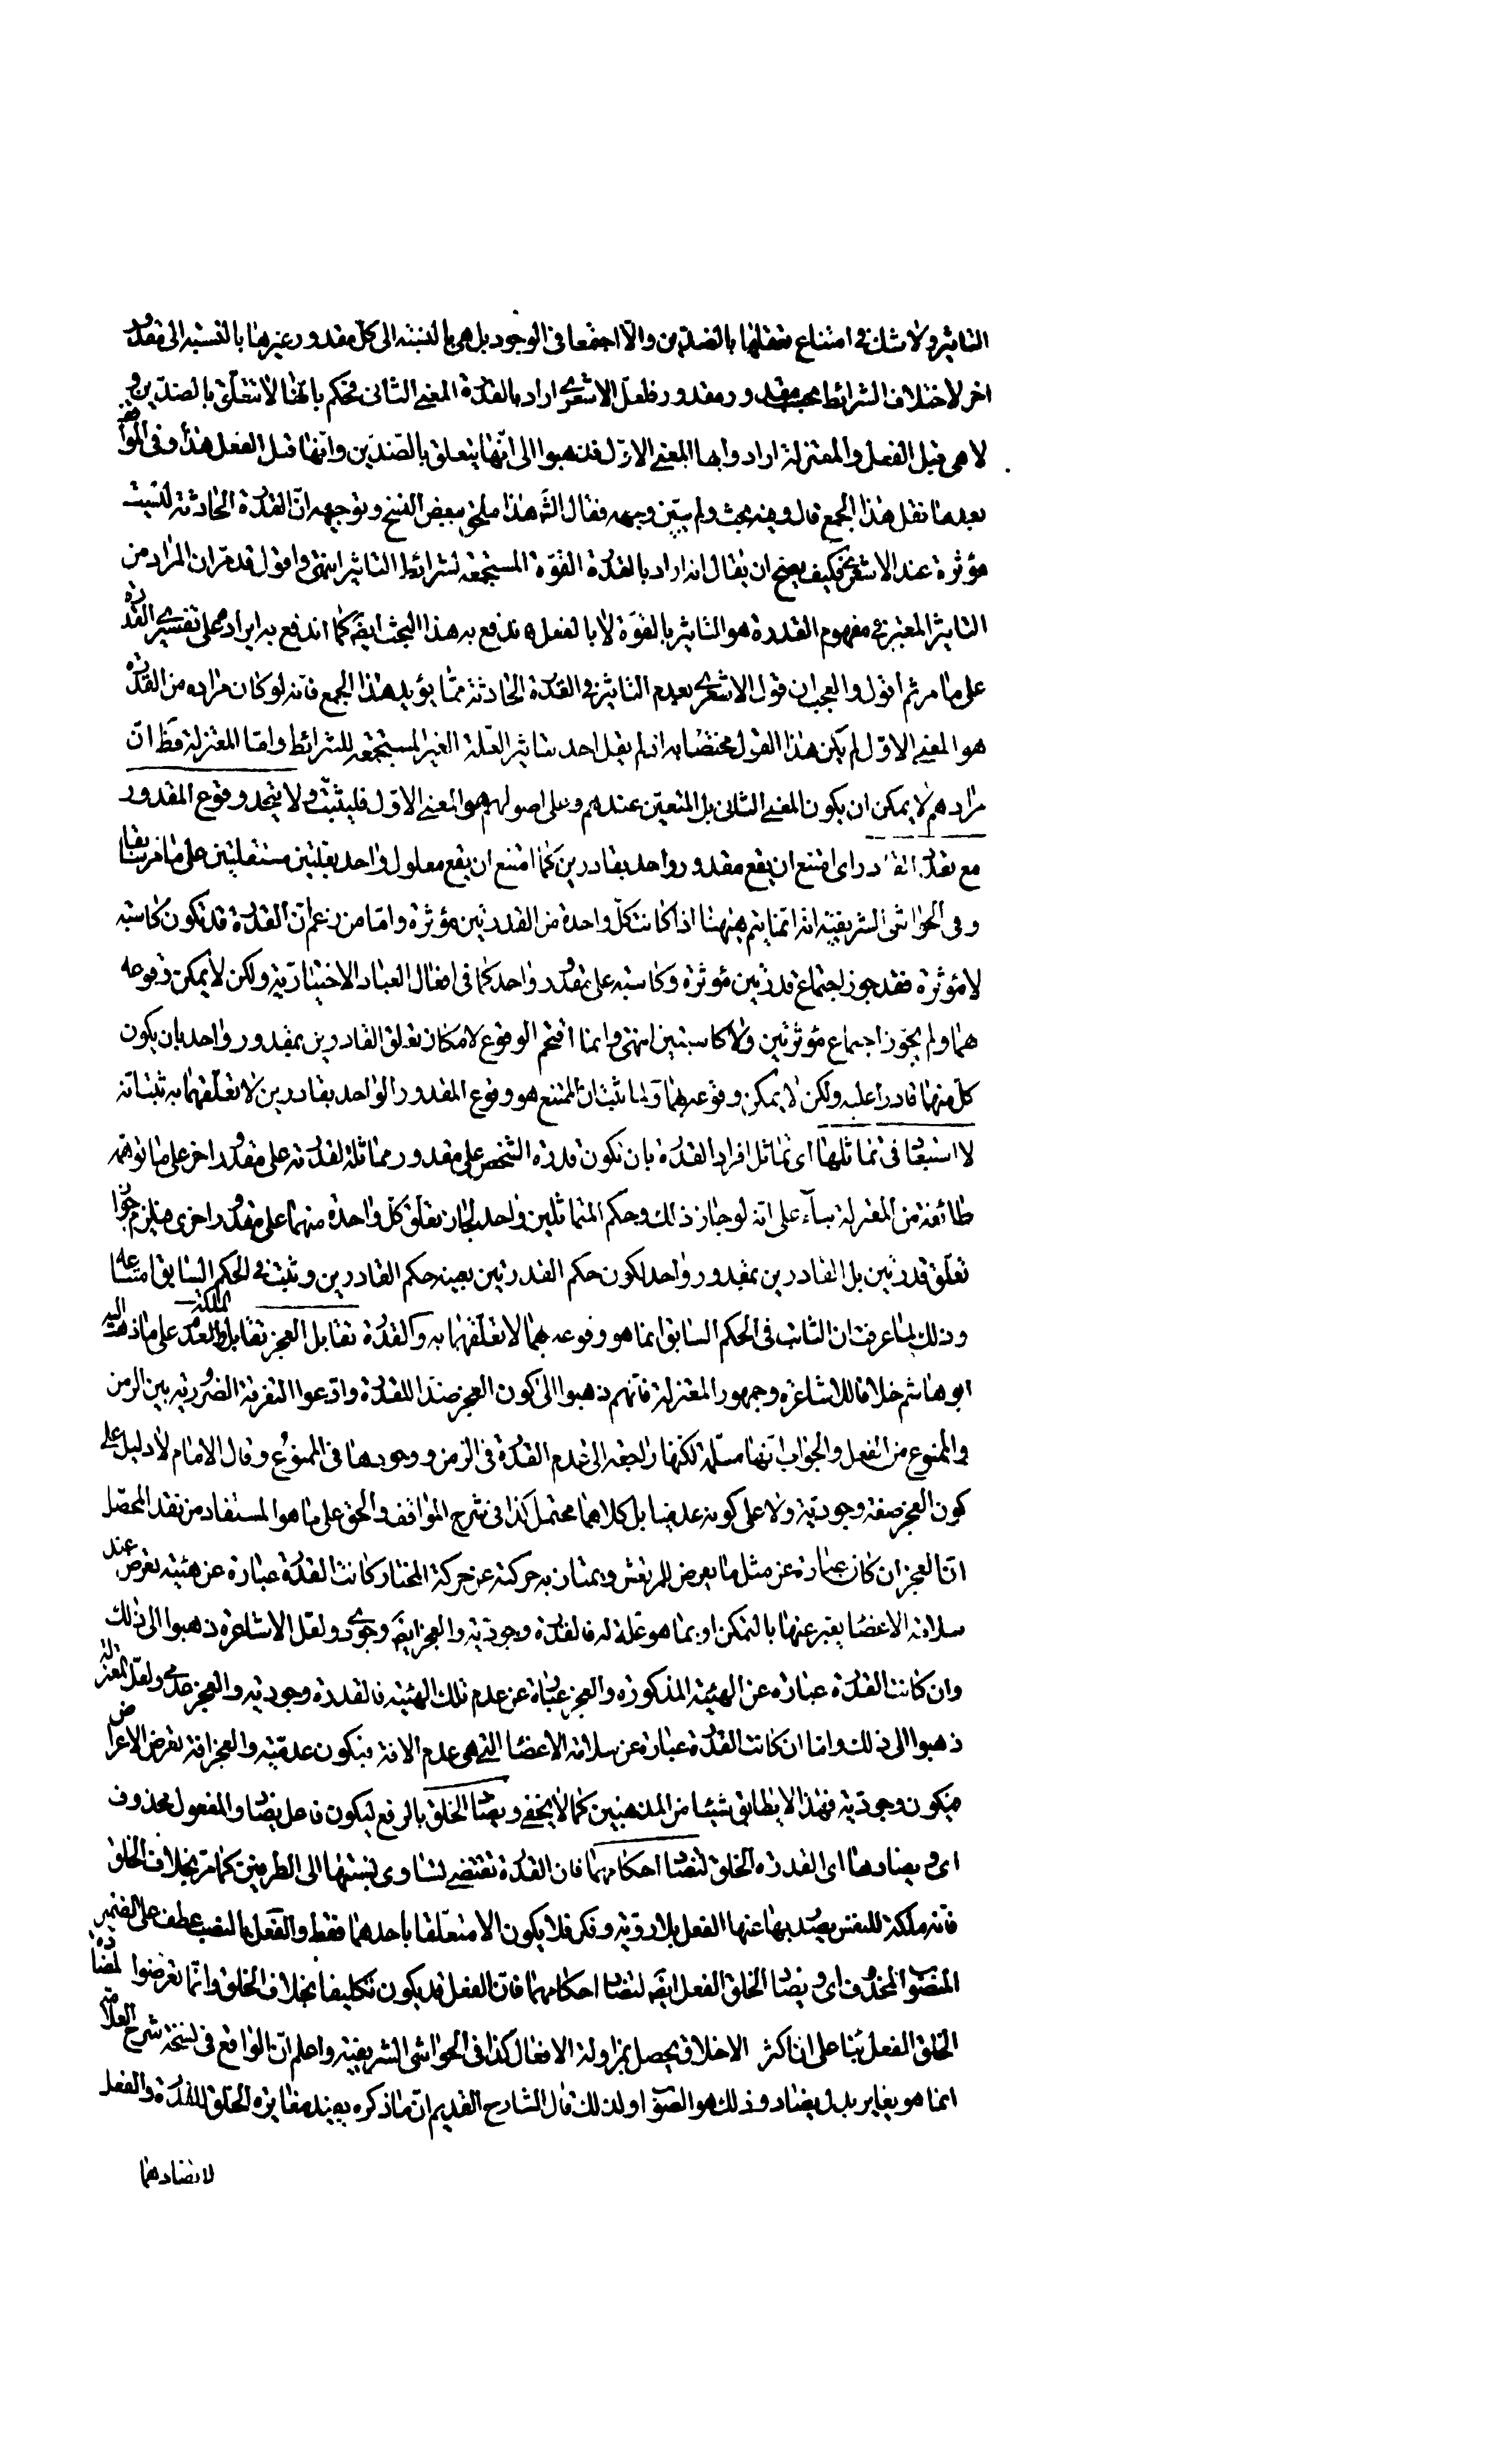 التاثير ولا شك فى امتناع تعلقها بالضدين والا اجتمعا فى الوجود بل هى بالنسبة الى كل مقدور غيرها بالنسبة الى مقدور
اخر لاختلاف الشرائط بحسب مقدور ومقدور فلعل الاشعرى اراد بالقدرة المعنى الثانى فحكم بانها لا تتعلق بالضدين و
لا هى قبل الفعل والمعتزلة ارادوا بها المعنى الاول فذهبوا الى انها يتعلق بالضدين وانها قبل الفعل هذا وفى المواقف
بعد ما نقل هذا الجمع قال وفيه بحث ولم يبين وجهه فقال الش هذا ملحق ببعض النسخ وتوجيهه ان القدرة الحادثة ليست
مؤثرة عند الاشعرى فكيف يصح ان يقال انه اراد بالقدرة القوة المستجمعة لشرائط التاثير انتهى واقول قد مر ان المراد من
التاثير المعتبر فى مفهوم القدرة هو التاثير بالقوة لا بالفعل فاندفع به هذا البحث ايضا كما اندفع به ايراده على تفسير القدرة
على ما مر ثم اقول والعجب ان قول الاشعرى بعدم التاثير فى القدرة الحادثة مما يؤيد هذا الجمع فانه لو كان مراده من القدرة
هو المعنى الاول لم يكن هذا القول مختصا به اذ لم يقل احد بتاثير العلة الغير المستجمعة للشرائط واما المعتزلة فظ ان
مرادهم لا يمكن ان يكون المعنى الثانى بل المتعين عندهم وعلى اصولهم هو المعنى الاول فليتثبت ولا يتحد وقوع المقدور
مع تعدد القادر اى امتنع ان يقع مقدور واحد بقادرين كما امتنع ان يقع معلول واحد بعلتين مستقلتين على ما مر سابقا
وفى الحواشى الشريفية انه انما يتم فيهما اذا كانت كل واحدة من القدرتين مؤثرة واما من زعم ان القدرة قد تكون كاسبة
لا مؤثرة فقد جوز اجتماع قدرتين مؤثرة وكاسبة على مقدور واحد كما فى افعال العباد الاختيارية ولكن لا يمكن وقوعه
هما ولم يجوز اجتماع مؤثرتين ولا كاسبتين انتهى وانما اقحم الوقوع لامكان تعلق القادرين بمقدور واحد بان يكون
كل منهما قادرا عليه ولكن لا يمكن وقوعه بهما ولما ثبت ان الممتنع هو وقوع المقدور الواحد بقادرين لا تعلقهما به ثبت انه
لا استبعاد فى تماثلها اى تماثل افراد القدرة بان تكون قدرة الشخص على مقدور مماثلة لقدرته على مقدور اخر على ما توهمه
طائفة من المعتزلة بناء على انه لو جاز ذلك وحكم المتماثلين واحد لجاز تعلق كل واحدة منهما على مقدور اخرى فيلزم جواز
تعلق قدرتين بل القادرين بمقدور واحد لكون حكم القدرتين بعينه حكم القادرين وثبت فى الحكم السابق امتناعه
وذلك لما عرفت ان الثابت فى الحكم السابق انما هو وقوعه بهما لا تعلقهما به والقدرة تقابل العجز تقابل الملكة والعدم على ما ذهب اليه
ابو هاشم خلافا للاشاعرة وجمهور المعتزلة فانهم ذهبوا الى كون العجز ضدا للقدرة وادعوا التفرقة الضرورية بين الزمن
والممنوع من الفعل والجواب انها مسلمة لكنها راجعة الى عدم القدرة فى الزمن ووجودها فى الممنوع وقال الامام لا دليل على
كون العجز صفة وجودية ولا على كونه عدميا بل كلاهما محتمل كذا فى شرح المواقف والحق على ما هو المستفاد من نقد المحصل
ان العجز ان كان عبارة عن مثل ما يعرض للمرتعش ويمتاز به حركته عن حركة المختار كانت القدرة عبارة عن هيئة تعرض عند
سلامة الاعضا يعبر عنها بالتمكن او بما هو علة له فالقدرة وجودية والعجز ايضا وجودى ولعل الاشاعرة ذهبوا الى ذلك
وان كانت القدرة عبارة عن الهيئة المذكورة والعجز عبارة عن عدم تلك الهيئة فالقدرة وجودية والعجز عدمى ولعل المعتزلة
ذهبوا الى ذلك واما ان كانت القدرة عبارة عن سلامة الاعضا التى هى عدم الافة فيكون عدمية والعجز افة تعرض الاعراض
فيكون وجودية فهذا لا يطابق شيئا من المذهبين كما لا يخفى ويضاد الخلق بالرفع ليكون فاعل يضاد والمفعول محذوف
اى ويضادها اى القدرة الخلق لتضاد احكامهما فان القدرة تقتضى لتساوى نسبتها الى الطرفين كما مر بخلاف الخلق
فانه ملكة للنفس يصدر بها عنها الفعل بلا روية وفكر فلا يكون الا متعلقا باحدهما فقط والفعل بالنصب عطف على الضمير
المنصوب المحذوف اى ويضاد الخلق الفعل ايضا لتضاد احكامهما فان الفعل قد يكون تكليفا بخلاف الخلق وانما تعرضوا لمضادة
الخلق الفعل بناء على ان اكثر الاخلاق يحصل بمزاولة الافعال كذا فى الحواشى الشريفية واعلم ان الواقع فى نسخة شرح العلامة
انما هو يغاير بدل يضاد وذلك هو الصواب ولذلك قال الشارح القديم ان ما ذكره يفيد مغايرة الخلق للقدرة والفعل
لا تضادهما